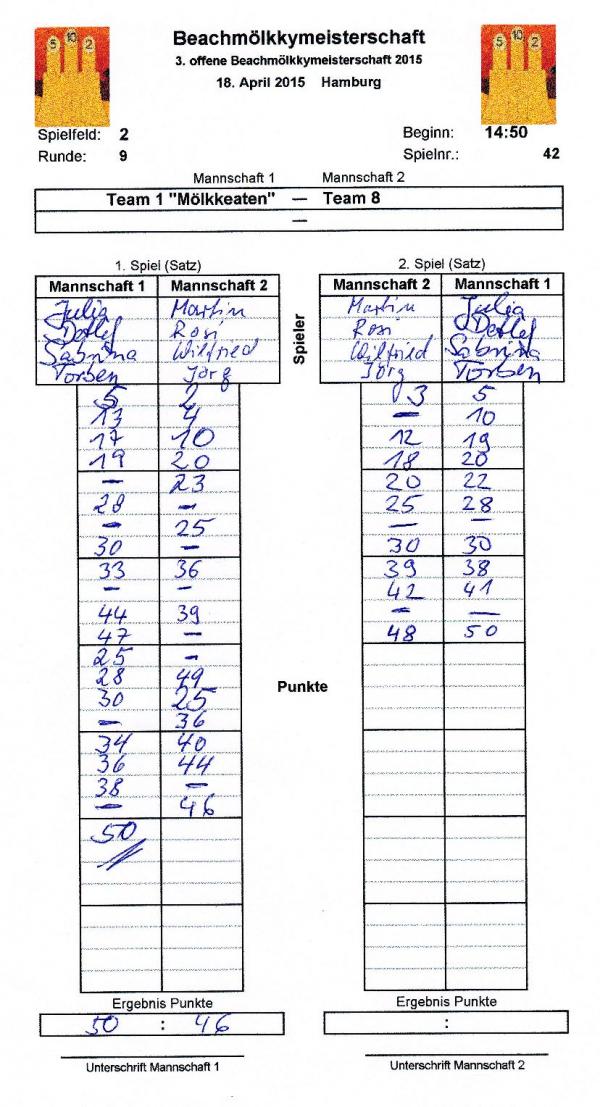 5 10 2
Beachmölkkymeisterschaft
5 10 2
3. offene Beachmölkkymeisterschaft 2015
18. April 2015 Hamburg
Spielfeld: 2 Beginn: 14:50
Runde: 9 Spielnr.: 42
Mannschaft 1 Mannschaft 2
Team 1 "Mölkkeaten" — Team 8
—
1. Spiel (Satz) 2. Spiel (Satz)
Mannschaft 1 Mannschaft 2 Mannschaft 2 Mannschaft 1
Julia Martin Martin Julia
Detlef Rosi Rosi Detlef
Sabrina Wilfried Wilfried Sabrina
Torben Jörg Jörg Torben
Spieler
5 2 3 5
13 4 — 10
17 10 12 19
19 20 18 20
— 23 20 22
28 — 25 28
— 25 — —
30 — 30 30
33 36 39 38
— — 42 41
44 39 — —
47 — 48 50
25 —
28 49
30 25
— 36
Punkte
34 40
36 44
38 —
— 46
50
Ergebnis Punkte Ergebnis Punkte
50 : 46 :
Unterschrift Mannschaft 1 Unterschrift Mannschaft 2